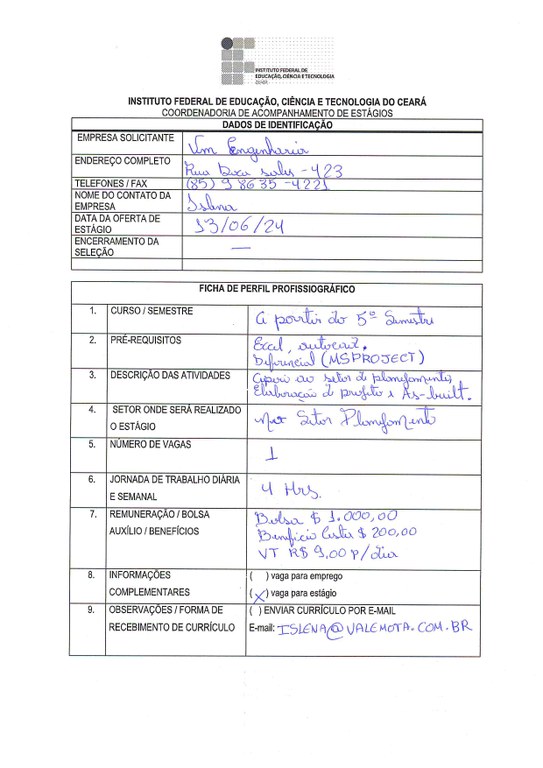 INSTITUTO FEDERAL DE
EDUCAÇÃO, CIÊNCIA E TECNOLOGIA
CEARÁ
INSTITUTO FEDERAL DE EDUCAÇÃO, CIÊNCIA E TECNOLOGIA DO CEARÁ
COORDENADORIA DE ACOMPANHAMENTO DE ESTÁGIOS
DADOS DE IDENTIFICAÇÃO
EMPRESA SOLICITANTE Vm Engenharia
ENDEREÇO COMPLETO Rua sales - 423
TELEFONES / FAX (85) 9 8635-4221
NOME DO CONTATO DA
EMPRESA Islena
DATA DA OFERTA DE
ESTÁGIO 13/06/24
ENCERRAMENTO DA
SELEÇÃO —
FICHA DE PERFIL PROFISSIOGRÁFICO
1. CURSO / SEMESTRE a partir do 5º Semestre
2. PRÉ-REQUISITOS Excel, autocad.
Diferencial (MSPROJECT)
3. DESCRIÇÃO DAS ATIVIDADES Apoio ao setor de planejamento,
Elaboração de projeto e As-built.
4. SETOR ONDE SERÁ REALIZADO
O ESTÁGIO Setor Planejamento
5. NÚMERO DE VAGAS 1
6. JORNADA DE TRABALHO DIÁRIA
E SEMANAL 4 Hrs.
7. REMUNERAÇÃO / BOLSA
AUXÍLIO / BENEFÍCIOS
Bolsa $ 1.000,00
Benefício Cesta $ 200,00
VT R$ 9,00 p/dia
8. INFORMAÇÕES
COMPLEMENTARES
( ) vaga para emprego
(X) vaga para estágio
9. OBSERVAÇÕES / FORMA DE
RECEBIMENTO DE CURRÍCULO
( ) ENVIAR CURRÍCULO POR E-MAIL
E-mail: ISLENA@VALEMOTA.COM.BR